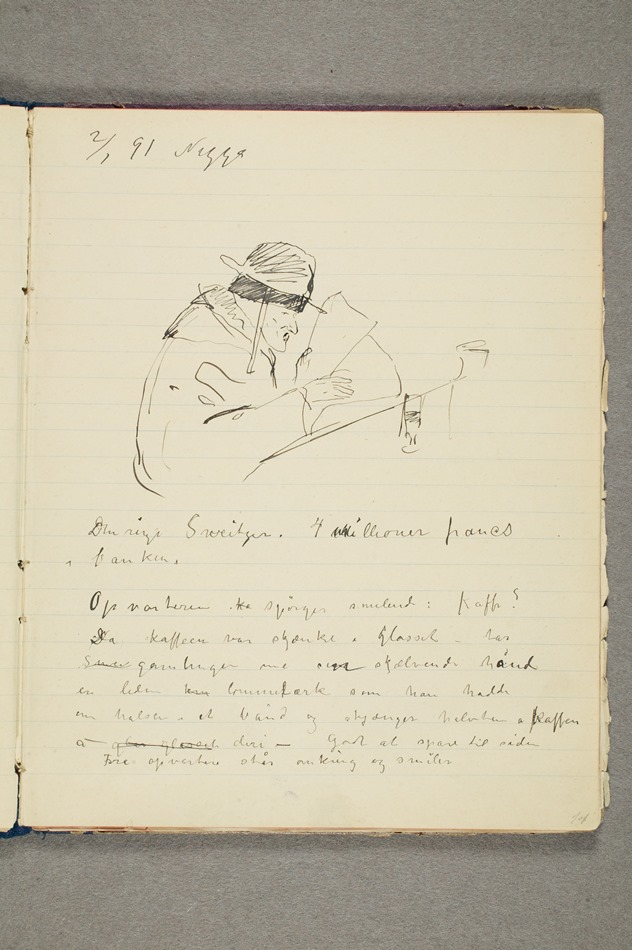 2/1 91 Nizza
Den rige Sveitzer. 4 millioner francs
i banken.
Opvarteren spörger smilend: kaffe?
Da kaffeen var skjænket i Glasset – tar
gamlingen med skjælvende hånd
en liden lommelærk som han hadde
om halsen i et bånd og skjænger halvten a kaffen
a glasset deri – Godt at spare til siden
Fire opvartere står omkring og smiler